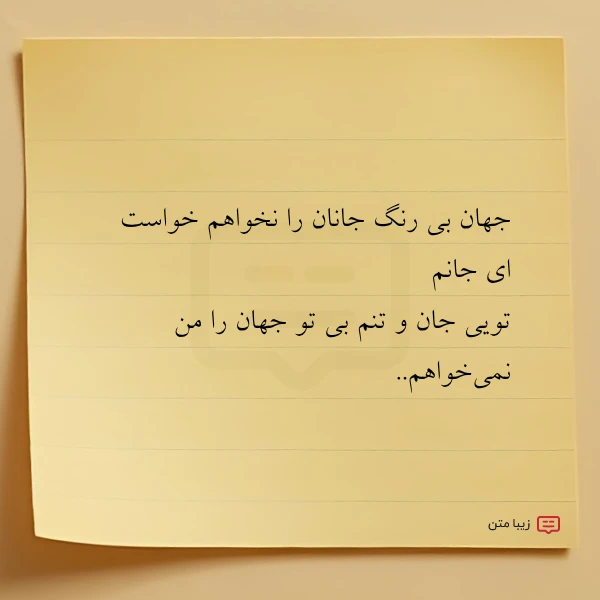 جهان بی رنگ جانان را نخواهم خواست
ای جانم
تویی جان و تنم بی تو جهان را من
نمی‌خواهم..
زیبا متن